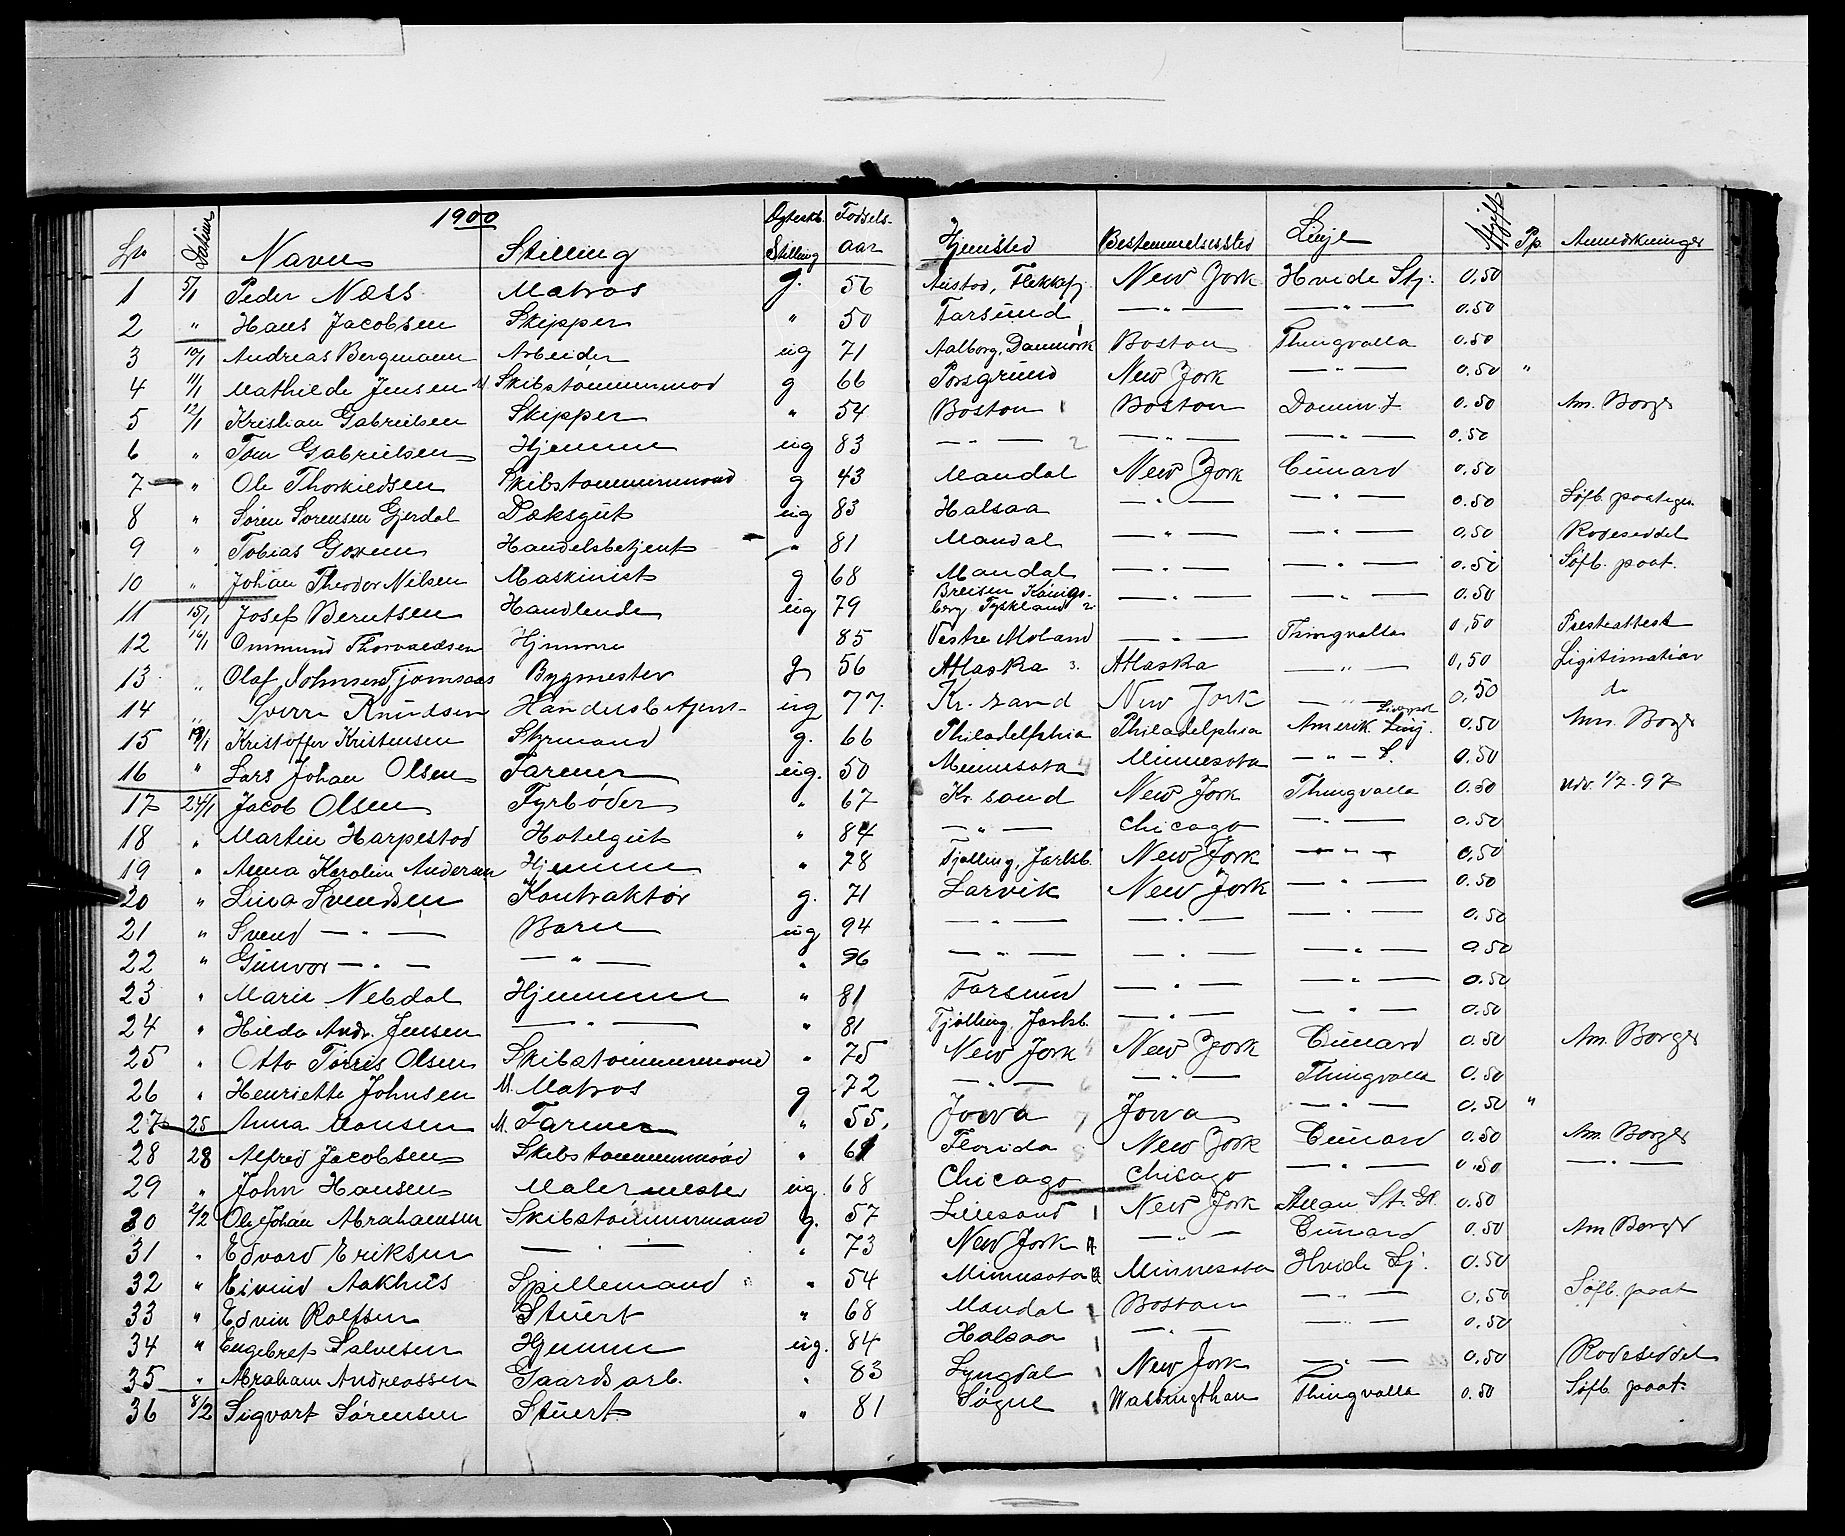 1900
Lo Datum Navn Stilling Ægteskb. Stilling Fødsels-aar Hjemsted Bestemmelsessted Linje Afgift Pp. Anmærkninger
1 5/1 Peder Næss Matros g. 56 Flekkefj. New York Hvide Stj. 0,50
2 " Hans Jacobsen Skipper " 50 Farsund — " — — " — 0.50
3 10/1 Andreas Bergmann Arbeider ug 71 Aalborg, Danmark Boston Thingvalla 0.50
4 11/1 Mathilde Jensen M. Skibstømmermad g 66 Porsgrund New York — " — 0.50 "
5 12/1 Kristian Gabrielsen Skipper " 54 Boston 1 Boston Domin. L. 0.50 Am. Borger
6 " Tom Gabrielsen Hjemme ug 83 — " — 2 — " — — " — 0.50
7 " Ole Thorkildsen Skibstømmermand g 43 Mandal New York Cunard 0.50
8 " Søren Sørensen Gjerdal Dæksgut ug 83 Halsaa — " — — " — 0.50 Søfb. paateger.
9 " Tobias Handelsbetjent " 81 Mandal — " — — " — 0,50 Rodeseddel
10 " Johan Theodor Nilsen Maskinist g 68 Mandal — " — — " — 0.50 Søfb. paat.
11 15/1 Josef Berntsen Handlende ug 79 Königsberg Tyskland 2 — " — — " — 0.50
12 16/1 Ommund Thorvaldsen Hjemme 85 Vestre Moland — " — Thingvalla 0,50 Presteattest
13 " Olaf Johnsen Tjomsaas Bygmester g 56 Atlaska 3. Atlaska — " — 0,50 Ligitimation
14 " Sverre Knudsen Handelsbetjent ug 77. Kr. sand New York — " — 0.50 do
15 18/1 Kristoffer Kristensen Styrmand g. 66 Philadelphia Philadelphia Amerik. Linj. 0.50 Am. Borger
16 " Lars Johan Olsen Farmer ug. 50 Minnesota 4 Minnesota — " — L. 0.50
17 24/1 Jacob Olsen Fyrbøder " 67 Kr. sand New York Thingvalla 0.50 udv. 1/7.97
18 " Martin Harpestod Hotelgut " 84 — " — Chicago — " — 0.50
19 " Anna Karolin Andersen Hjemme " 78 Tjølling, Jarlsb. New York — " — 0,50
20 " Lina Svendsen Kontraktør g. 71 Larvik New York — " — 0.50
21 " Svend — " — Barn ug 94 — " — — " — — " — 0.50
22 " Gunvor — " — — " — " 96 — " — — " — — " — 0.50
23 " Marie Nebdal Hjemme " 81 Farsund — " — — " — 0.50
24 " Hilda Andr. Jensen — " — " 81 Tjølling, Jarlsb. — " — — " — 0.50
25 " Otto Torris Olsen Skibstømmermand " 75 New York 5 New York Cunard 0.50 Am. Borger
26 " Henriette Johnsen M. Matros g 72 — " — 6 — " — Thingvalla 0.50
27 25 Anna Monsen M. Farmer " 55. Jowa 7 Jowa — " — 0.50 "
28 28 Alfred Jacobsen Skibstømmermand " 61 Florida 8 New York Cunard 0.50 Am. Borger
29 " John Hansen Malermester ug. 68 Chicago Chicago — " — 0.50 — " —
30 2/2 Ole Johan Abrahamsen Skibstømmermand g. 57 Lillesand 1 New York Allan St. Gl. 0.50
31 " Edvard Eriksen — " — " 73 New York — " — Cunard 0.50 Am Borger
32 " Eivind Aakhus Spillemand " 54 Minnesota Minnesota Hvide Lj. 0.50
33 " Edvin Rolfsen Stuert " 68 Mandal 1 Boston — " — 0.50 Søfb. paat
34 " Engebret Salvesen Hjemme ug. 84 Halsaa 1 — " — — " — 0.50
35 " Abraham Andreassen Gaardsarb. " 83 Lyngdal 1 New York — " — 0.50 Rodeseddel
36 8/2 Sigvart Sørensen Stuert " 81 Søgne 1 Washingthan Thingvalla 0.50 Søfb. paat.